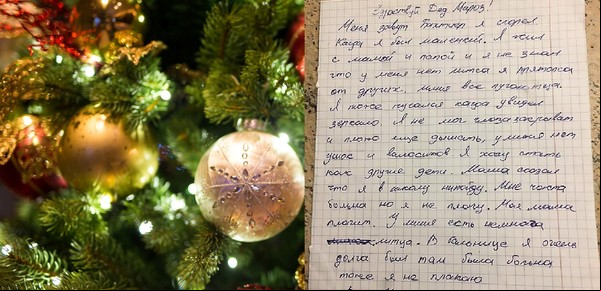 Здраствуй Дед Мороз!
Меня завут я сгорел
Кагда я был маленкий. Я жил
с мамай и папой и я не знал
что у меня нет литса я прятолса
от других. миня все
Я тоже пугался кагда увидел
зеркало. Я не мог глоза закривать
и плохо ище дышать, у миня нет
ушок и валосиков Я хачу стать
как другие дети. Мама сказал
что я в школу нипайду. Мне часта
больна но я не плачу. Моя мама
плачит. У миня есть немнога
литца. В больнице я очень
долга был там была больна
тоже я не плакаю